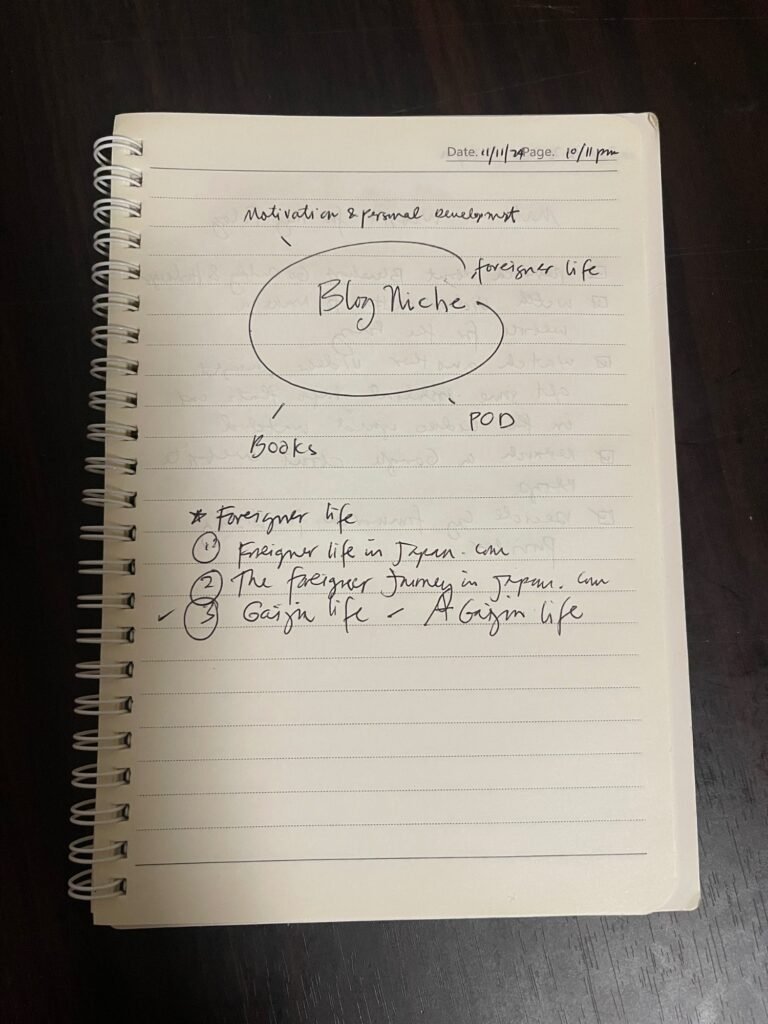 Date. 11/11/24 Page. 10/11 pm
Motivation & personal Development
foreigner life
Blog Niche
POD
Books
* Foreigner life
1 Foreigner life in Japan.com
2 The foreigner Journey in Japan.com
✓ 3 Gaijin life – A Gaijin life